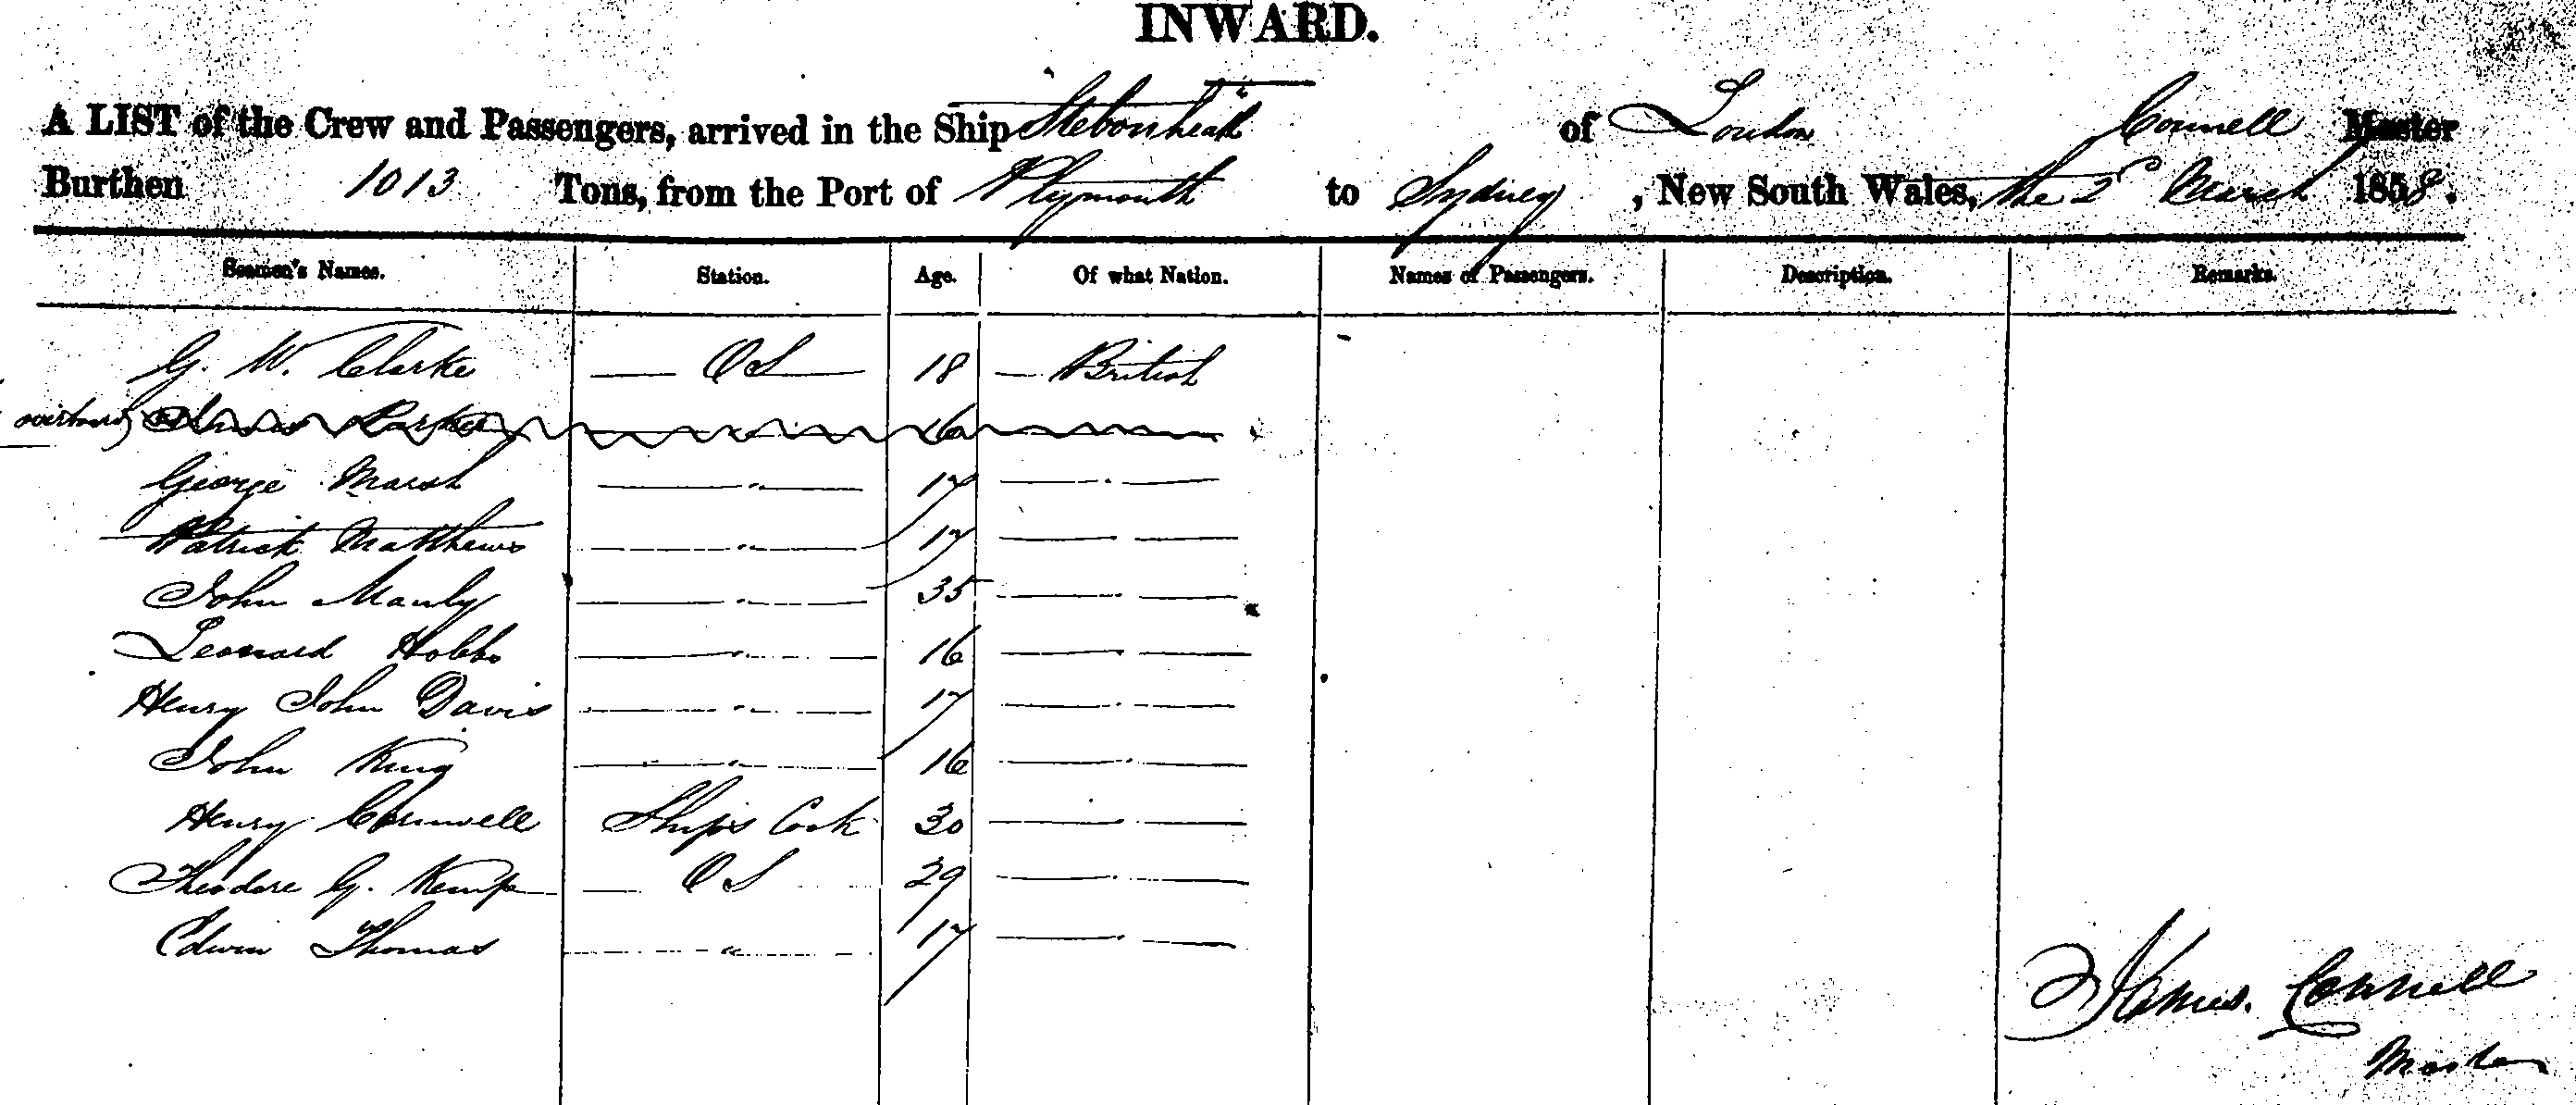 INWARD.
A LIST of the Crew and Passengers, arrived in the Ship Stebonheath of London Connell Master
Burthen 1013 Tons, from the Port of Plymouth to Sydney, New South Wales, the 2d March 1858.
Seamen's Names. Station. Age. Of what Nation. Names of Passengers. Description. Remarks.
G. W. Clarke — OS — 18 — British
overboard Thomas Parker — " — 16 — " —
George Marsh — " — 17 — " —
Patrick Matthews — " — 17 — " —
John Manly — " — 35 — " —
Leonard Hobbs — " — 16 — " —
Henry John Davis — " — 17 — " —
John King — " — 16 — " —
Henry Cornwell Ships Cook 30 — " —
Theodore G. Kemp — OS 29 — " —
Edwin Thomas — " — 17 — " —
James. Connell
Master